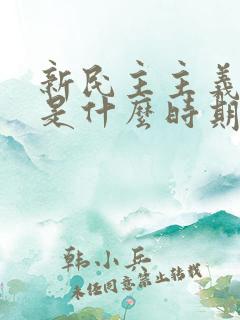 新民主主義
是什麼時期
韩小兵
未经同意禁止转载